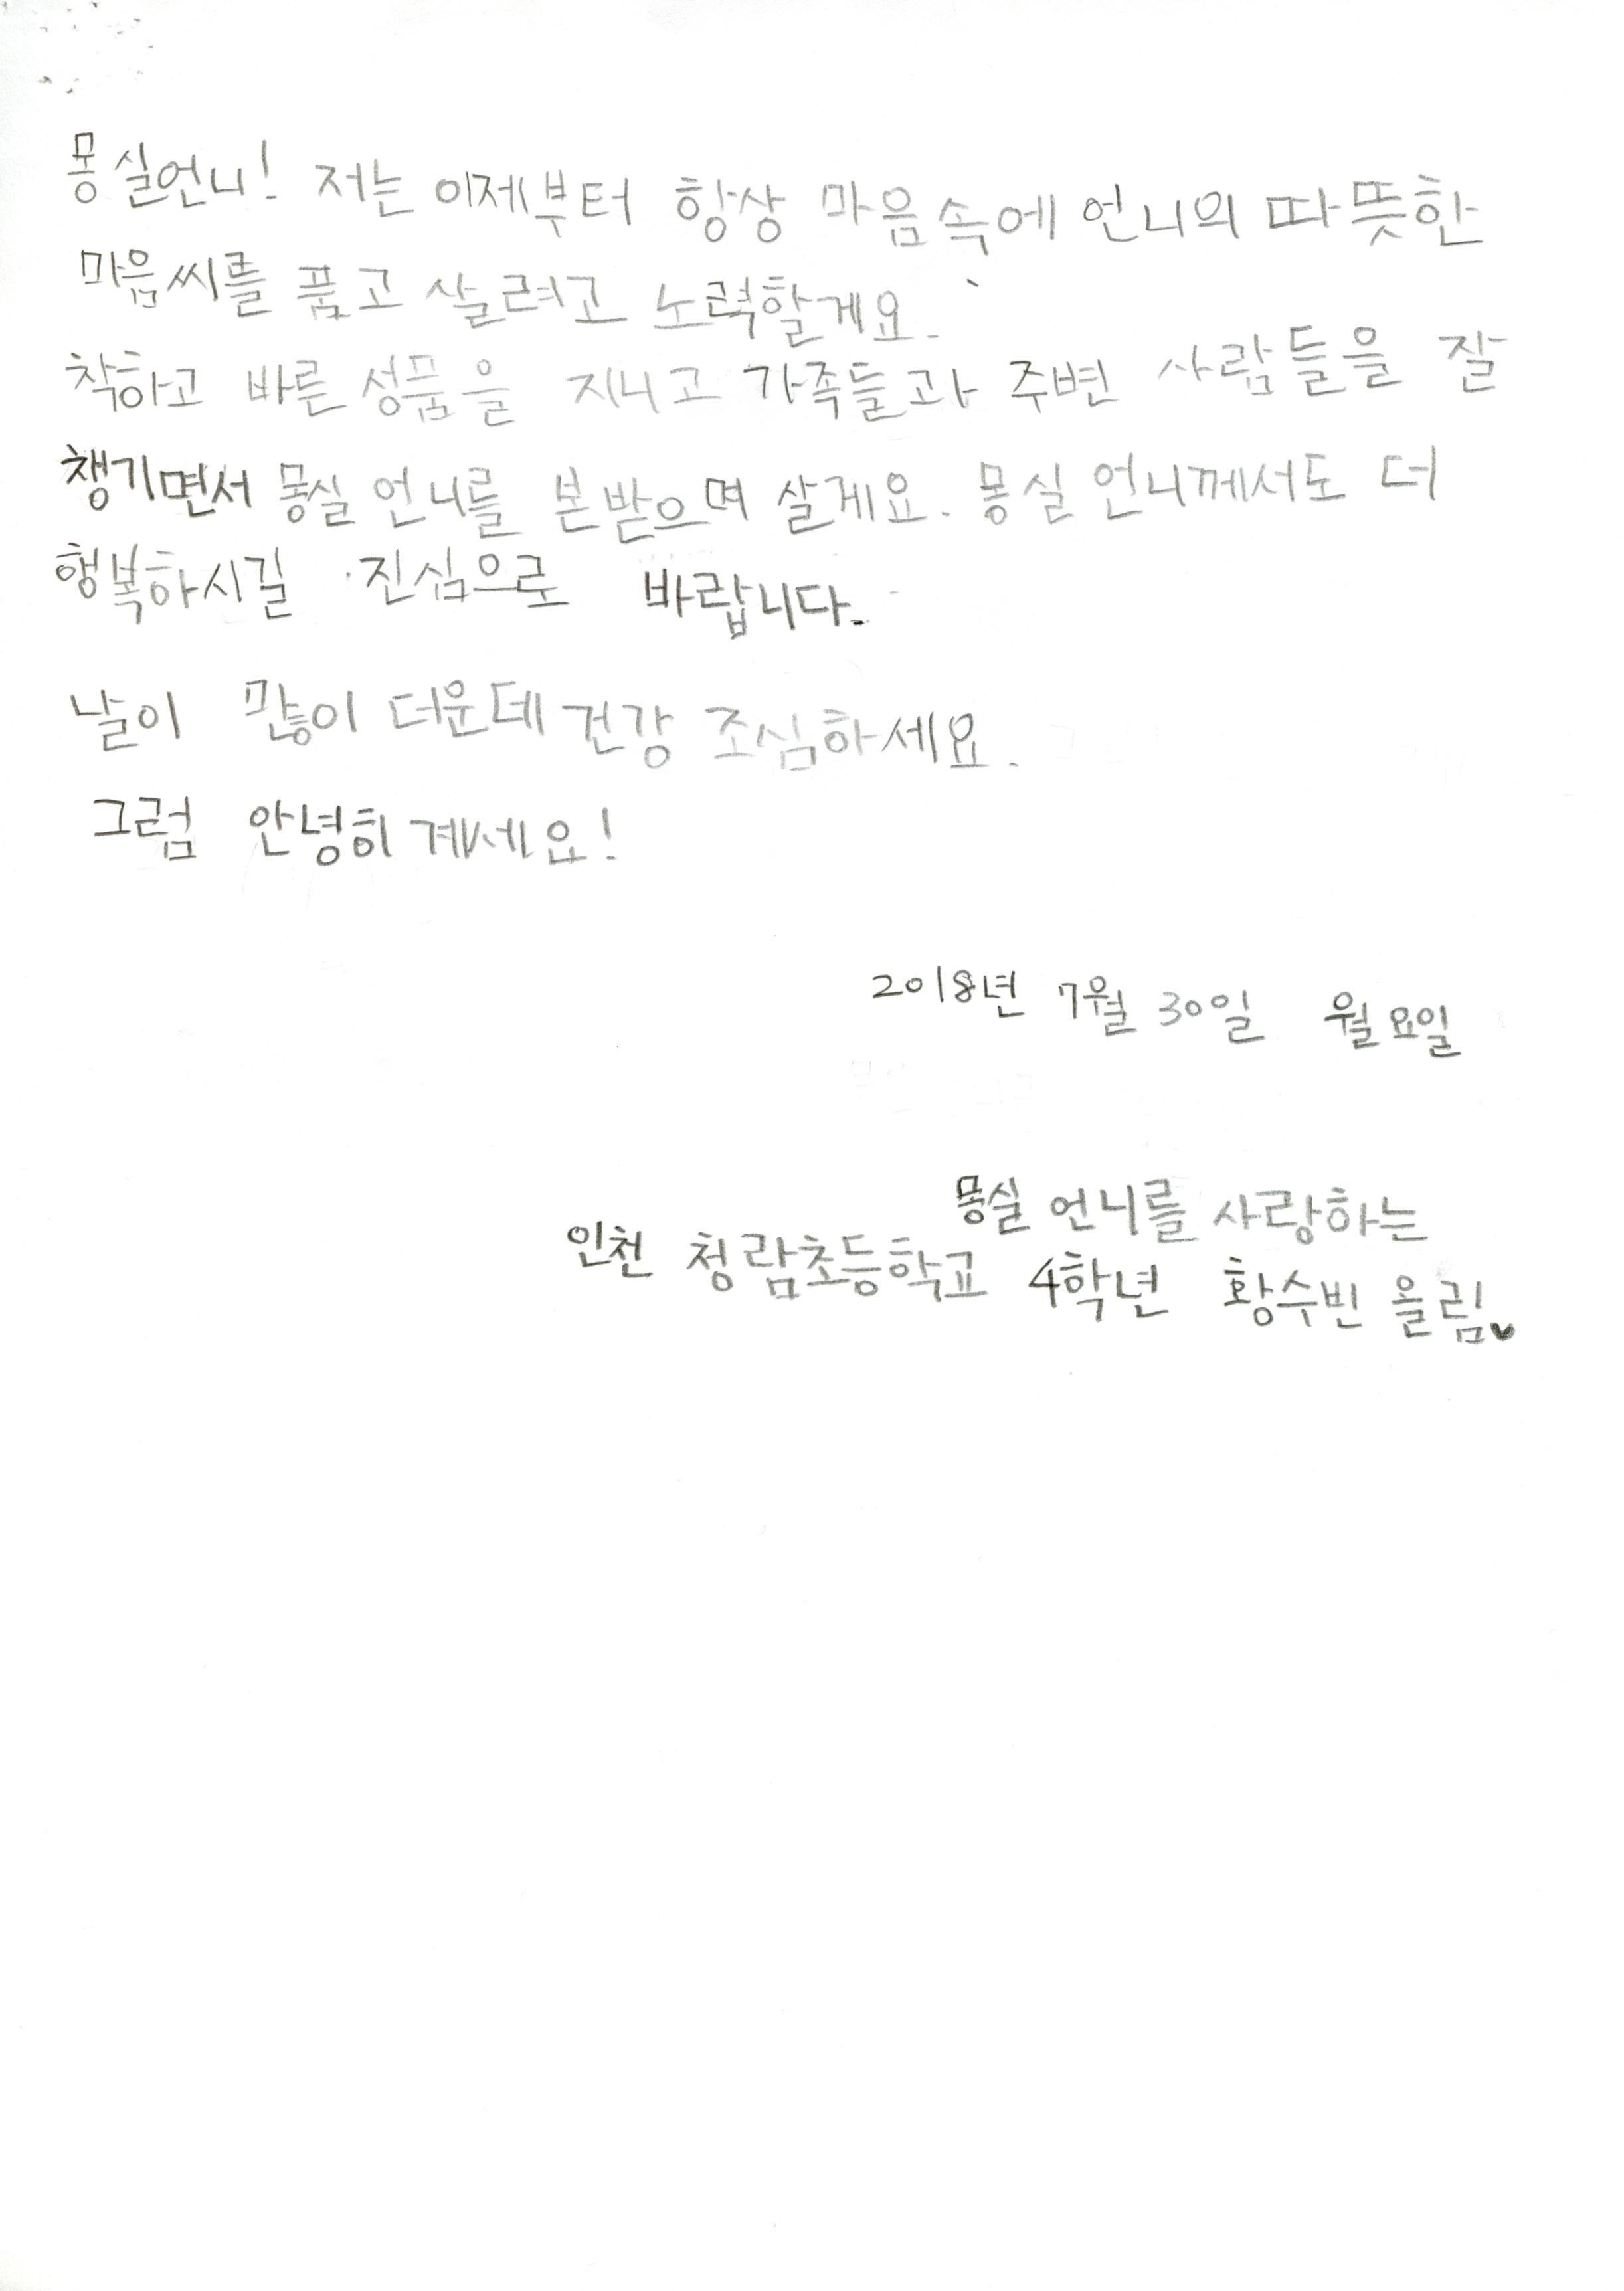 몽실언니! 저는 이제부터 항상 마음속에 언니의 따뜻한
마음씨를 품고 살려고 노력할게요.
착하고 바른 성품을 지니고 가족들과 주변 사람들을 잘
챙기면서 몽실 언니를 본받으며 살게요. 몽실 언니께서도 더
행복하시길 진심으로 바랍니다.
날이 많이 더운데 건강 조심하세요.
그럼 안녕히 계세요!
2018년 7월 30일 월요일
몽실 언니를 사랑하는
인천 청람초등학교 4학년 황수빈 올림♥